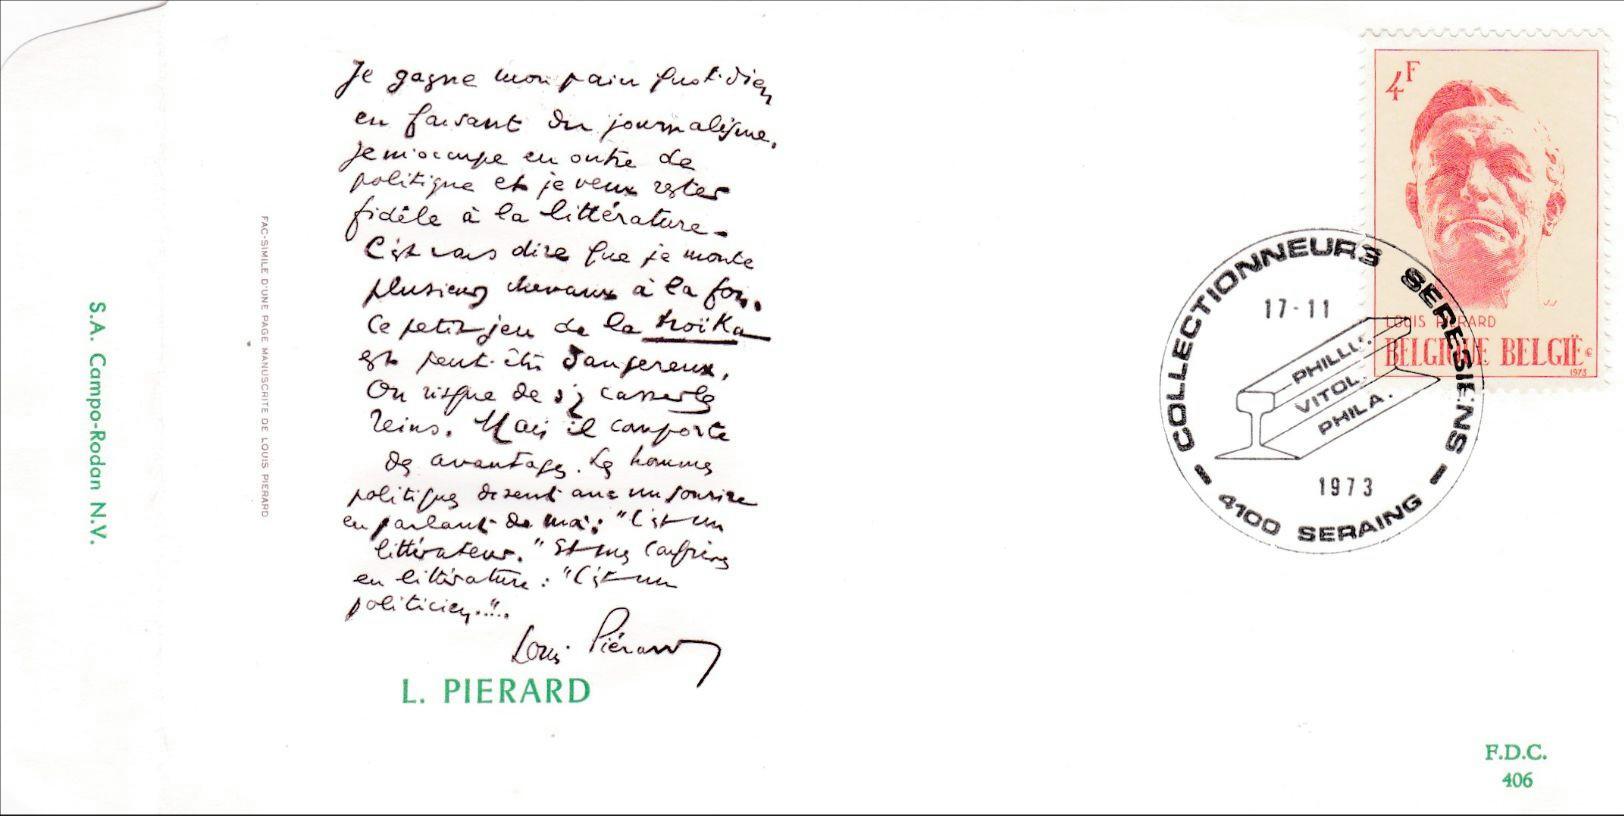 Je gagne mon pain quotidien
en faisant du journalisme.
Je m'occupe en outre de
politique et je veux rester
fidèle à la littérature.
C'est vous dire que je monte
plusieurs chevaux à la fois.
Ce petit jeu de la troïka
est peut-être dangereux.
On risque de s'y casser les
reins. Mais il comporte
des avantages. Les hommes
politiques disent avec un sourire
en parlant de moi : "C'est un
littérateur." Et mes confrères
en littérature : "C'est un
politicien."..
Louis Piérard
L. PIERARD
FAC-SIMILE D'UNE PAGE MANUSCRITE DE LOUIS PIERARD
S.A. Campo-Rodan N.V.
4F
LOUIS PIERARD
BELGIQUE BELGIË
1973
COLLECTIONNEURS SERESIENS
17-11
PHILLU.
VITOL.
PHILA.
1973
4100 SERAING
F.D.C.
406